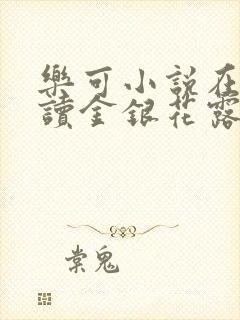 樂可小說在
讀金銀花露
棠鬼